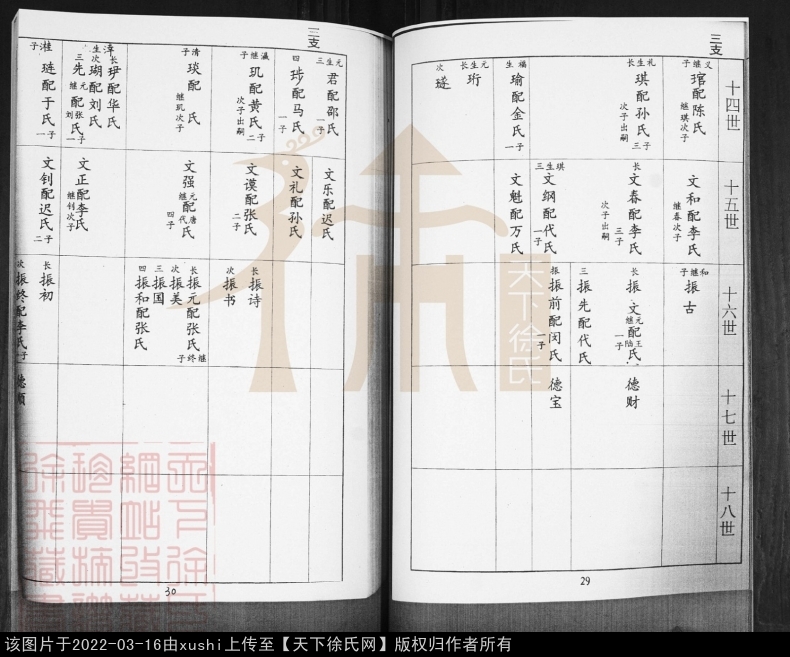 三支
十四世
十五世
十六世
十七世
十八世
义继子 琯配陈氏 继琪次子
文和配李氏 继春次子
和继子 振古
礼生长 琪配孙氏 三子 次子出嗣
长 文春配李氏 三子 次子出嗣
长 振文配 元王氏 继陆氏 一子
德财
三 振先配代氏
琪生三 文纲配代氏 一子
振前配闵氏 一子
德宝
元生长 珩
福生 瑜配金氏 一子
文魁配万氏
次 璲
29
三支
元生三 君配邵氏 一子
文乐配迟氏
四 玚配马氏 一子
文礼配孙氏
瀛继子 玑配黄氏 二子 次子出嗣
文谟配张氏 二子
长 振诗
次 振书
清子 琰配 氏 继玑次子
文强配 元唐氏 继代氏 四子
长 振元配张氏 继子终
次 振美
三 振国
四 振和配张氏
淳生长 玙配华氏
次 瑚配刘氏
三 先配 元张氏 继刘氏 一子
文正配李氏 继钊次子
淮子 琏配于氏 一子
文钊配迟氏 二子
长 振初
次 振终配李氏
德顺
30
天下徐氏
该图片于2022-03-16由xushi上传至【天下徐氏网】版权归作者所有